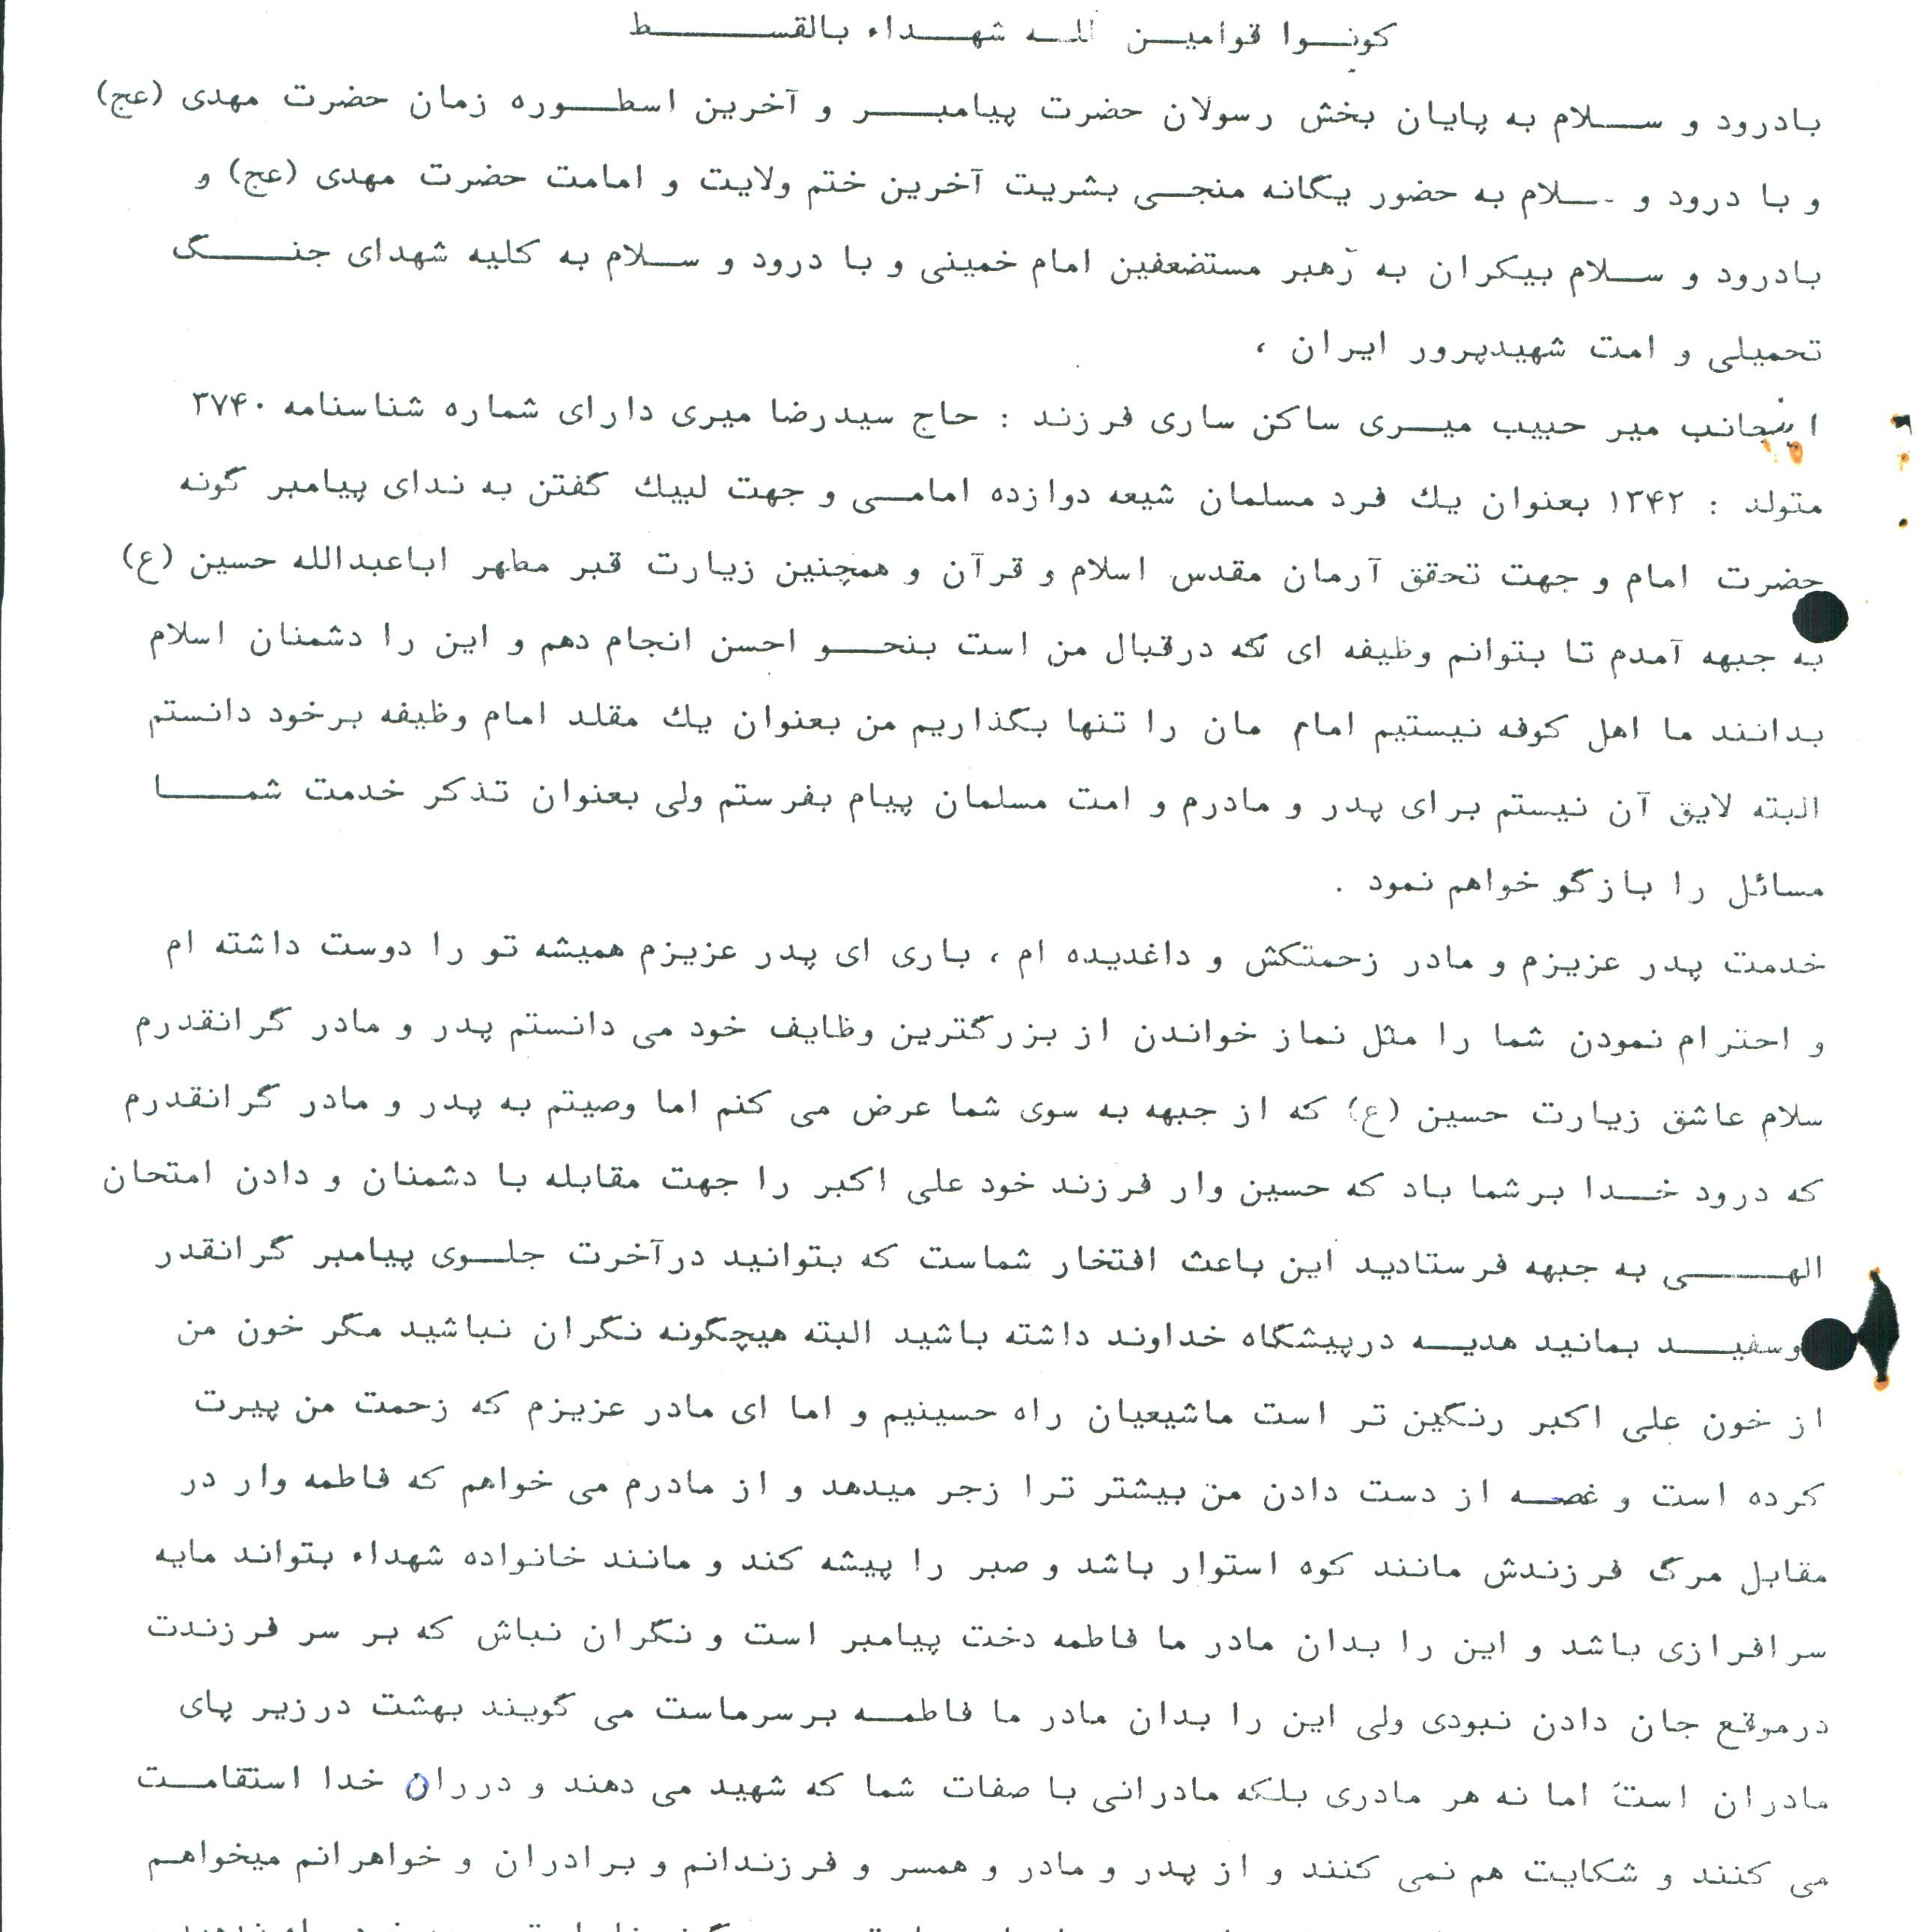 کونوا قوامین لله شهداء بالقسط
بادرود و سلام به پایان بخش رسولان حضرت پیامبر و آخرین اسطوره زمان حضرت مهدی (عج)
و با درود و سلام به حضور یگانه منجی بشریت آخرین ختم ولایت و امامت حضرت مهدی (عج) و
بادرود و سلام بیکران به رهبر مستضعفین امام خمینی و با درود و سلام به کلیه شهدای جنگ
تحمیلی و امت شهیدپرور ایران ،
اینجانب میر حبیب میری ساکن ساری فرزند : حاج سیدرضا میری دارای شماره شناسنامه ۳۷۴۰
متولد : ۱۳۴۲ بعنوان یك فرد مسلمان شیعه دوازده امامی و جهت لبیك گفتن به ندای پیامبر گونه
حضرت امام و جهت تحقق آرمان مقدس اسلام و قرآن و همچنین زیارت قبر مطهر اباعبدالله حسین (ع)
به جبهه آمدم تا بتوانم وظیفه ای که درقبال من است بنحو احسن انجام دهم و این را دشمنان اسلام
بدانند ما اهل کوفه نیستیم امام مان را تنها بگذاریم من بعنوان یك مقلد امام وظیفه برخود دانستم
البته لایق آن نیستم برای پدر و مادرم و امت مسلمان پیام بفرستم ولی بعنوان تذکر خدمت شما
مسائل را بازگو خواهم نمود .
خدمت پدر عزیزم و مادر زحمتکش و داغدیده ام ، باری ای پدر عزیزم همیشه تو را دوست داشته ام
و احترام نمودن شما را مثل نماز خواندن از بزرگترین وظایف خود می دانستم پدر و مادر گرانقدرم
سلام عاشق زیارت حسین (ع) که از جبهه به سوی شما عرض می کنم اما وصیتم به پدر و مادر گرانقدرم
که درود خدا برشما باد که حسین وار فرزند خود علی اکبر را جهت مقابله با دشمنان و دادن امتحان
الهی به جبهه فرستادید این باعث افتخار شماست که بتوانید درآخرت جلوی پیامبر گرانقدر
وسفید بمانید هدیه درپیشگاه خداوند داشته باشید البته هیچگونه نگران نباشید مگر خون من
از خون علی اکبر رنگین تر است ماشیعیان راه حسینیم و اما ای مادر عزیزم که زحمت من پیرت
کرده است و غصه از دست دادن من بیشتر ترا زجر میدهد و از مادرم می خواهم که فاطمه وار در
مقابل مرگ فرزندش مانند کوه استوار باشد و صبر را پیشه کند و مانند خانواده شهداء بتواند مایه
سرافرازی باشد و این را بدان مادر ما فاطمه دخت پیامبر است و نگران نباش که بر سر فرزندت
درموقع جان دادن نبودی ولی این را بدان مادر ما فاطمه برسرماست می گویند بهشت درزیر پای
مادران است اما نه هر مادری بلکه مادرانی با صفات شما که شهید می دهند و درراه خدا استقامت
می کنند و شکایت هم نمی کنند و از پدر و مادر و همسر و فرزندانم و برادران و خواهرانم میخواهم